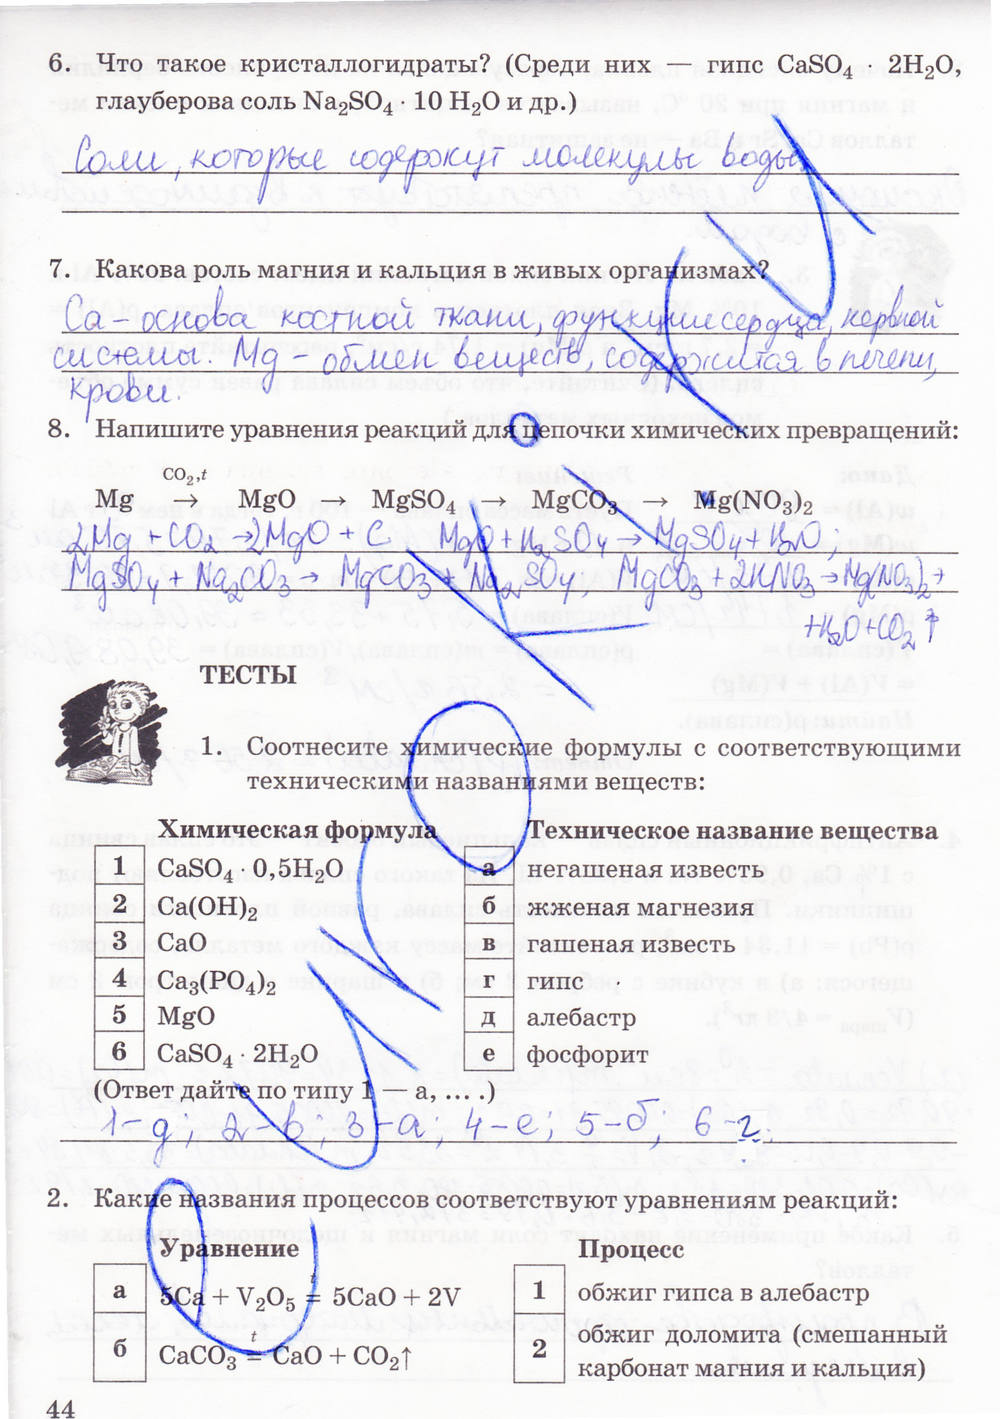 6. Что такое кристаллогидраты? (Среди них — гипс CaSO₄ · 2H₂O,
глауберова соль Na₂SO₄ · 10 H₂O и др.)
Соли, которые содержут молекулы воды
7. Какова роль магния и кальция в живых организмах?
Ca – основа костной ткани, функции сердца, нервной
системы. Mg – обмен веществ, содержится в печени,
крови.
8. Напишите уравнения реакций для цепочки химических превращений:
CO₂,t
Mg → MgO → MgSO₄ → MgCO₃ → Mg(NO₃)₂
2Mg + CO₂ → 2MgO + C; MgO + H₂SO₄ → MgSO₄ + H₂O;
MgSO₄ + Na₂CO₃ → MgCO₃ + Na₂SO₄; MgCO₃ + 2HNO₃ → Mg(NO₃)₂ +
+ H₂O + CO₂ ↑
ТЕСТЫ
1. Соотнесите химические формулы с соответствующими
техническими названиями веществ:
Химическая формула Техническое название вещества
1 CaSO₄ · 0,5H₂O а негашеная известь
2 Ca(OH)₂ б жженая магнезия
3 CaO в гашеная известь
4 Ca₃(PO₄)₂ г гипс
5 MgO д алебастр
6 CaSO₄ · 2H₂O е фосфорит
(Ответ дайте по типу 1 — а, ... .)
1–д; 2–в, 3–а, 4–е; 5–б, 6–г.
2. Какие названия процессов соответствуют уравнениям реакций:
Уравнение Процесс
а 5Ca + V₂O₅ =ᵗ 5CaO + 2V 1 обжиг гипса в алебастр
б CaCO₃ =ᵗ CaO + CO₂↑ 2 обжиг доломита (смешанный
карбонат магния и кальция)
44